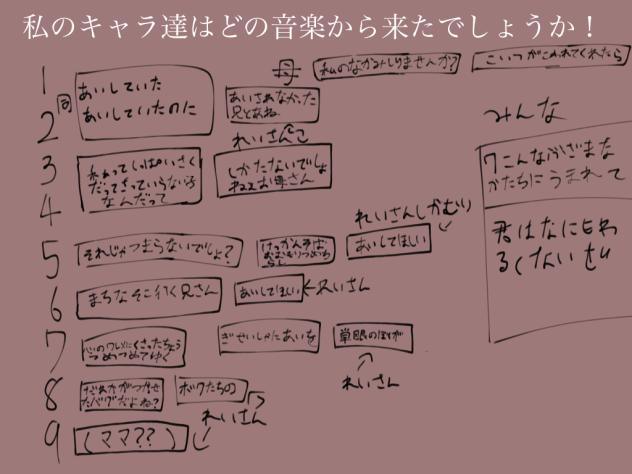 私のキャラ達はどの音楽から来たでしょうか！
母
私のなかみしりませんか？
こいつがこわれてくれたら
1
同
2
あいしていた
あいしていたのに
あいされなかった
兄とあね
れいさんこ
3
4
私ってしっぱいさく
だってきっていらない子
なんだって
しかたないでしょ
ねえお母さん
みんな
ワこんなぶざまな
かたちにうまれて
君はなにもわ
るくないぜ
れいさんしかむり
5
それじゃつまらないでしょ？
あいしてほしい
6
まちなそこ行く兄さん
あいしてほしい
れいさん
7
つめつめてゆく
ぎせいしゃにあいを
単眼のぼが
れいさん
8
だれかがつかせ
たバグだよね？
ボクたちの
れいさん
9
(ママ??)